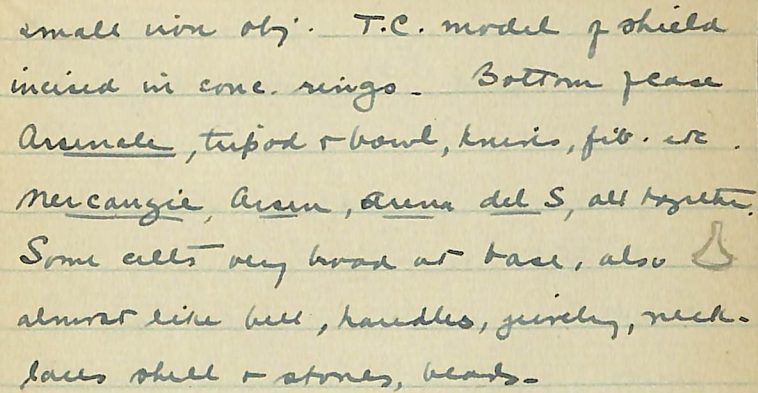 small iron obj. T.C. model of shield
incised in conc. rings. Bottom of case
Arsenale, tripod + bowl, knives, fib. etc.
Mercangie, Arsen, Arena del S, all together.
Some celts very broad at base, also
almost like bell, handles, jewelry, neck-
laces shell + stones, beads.